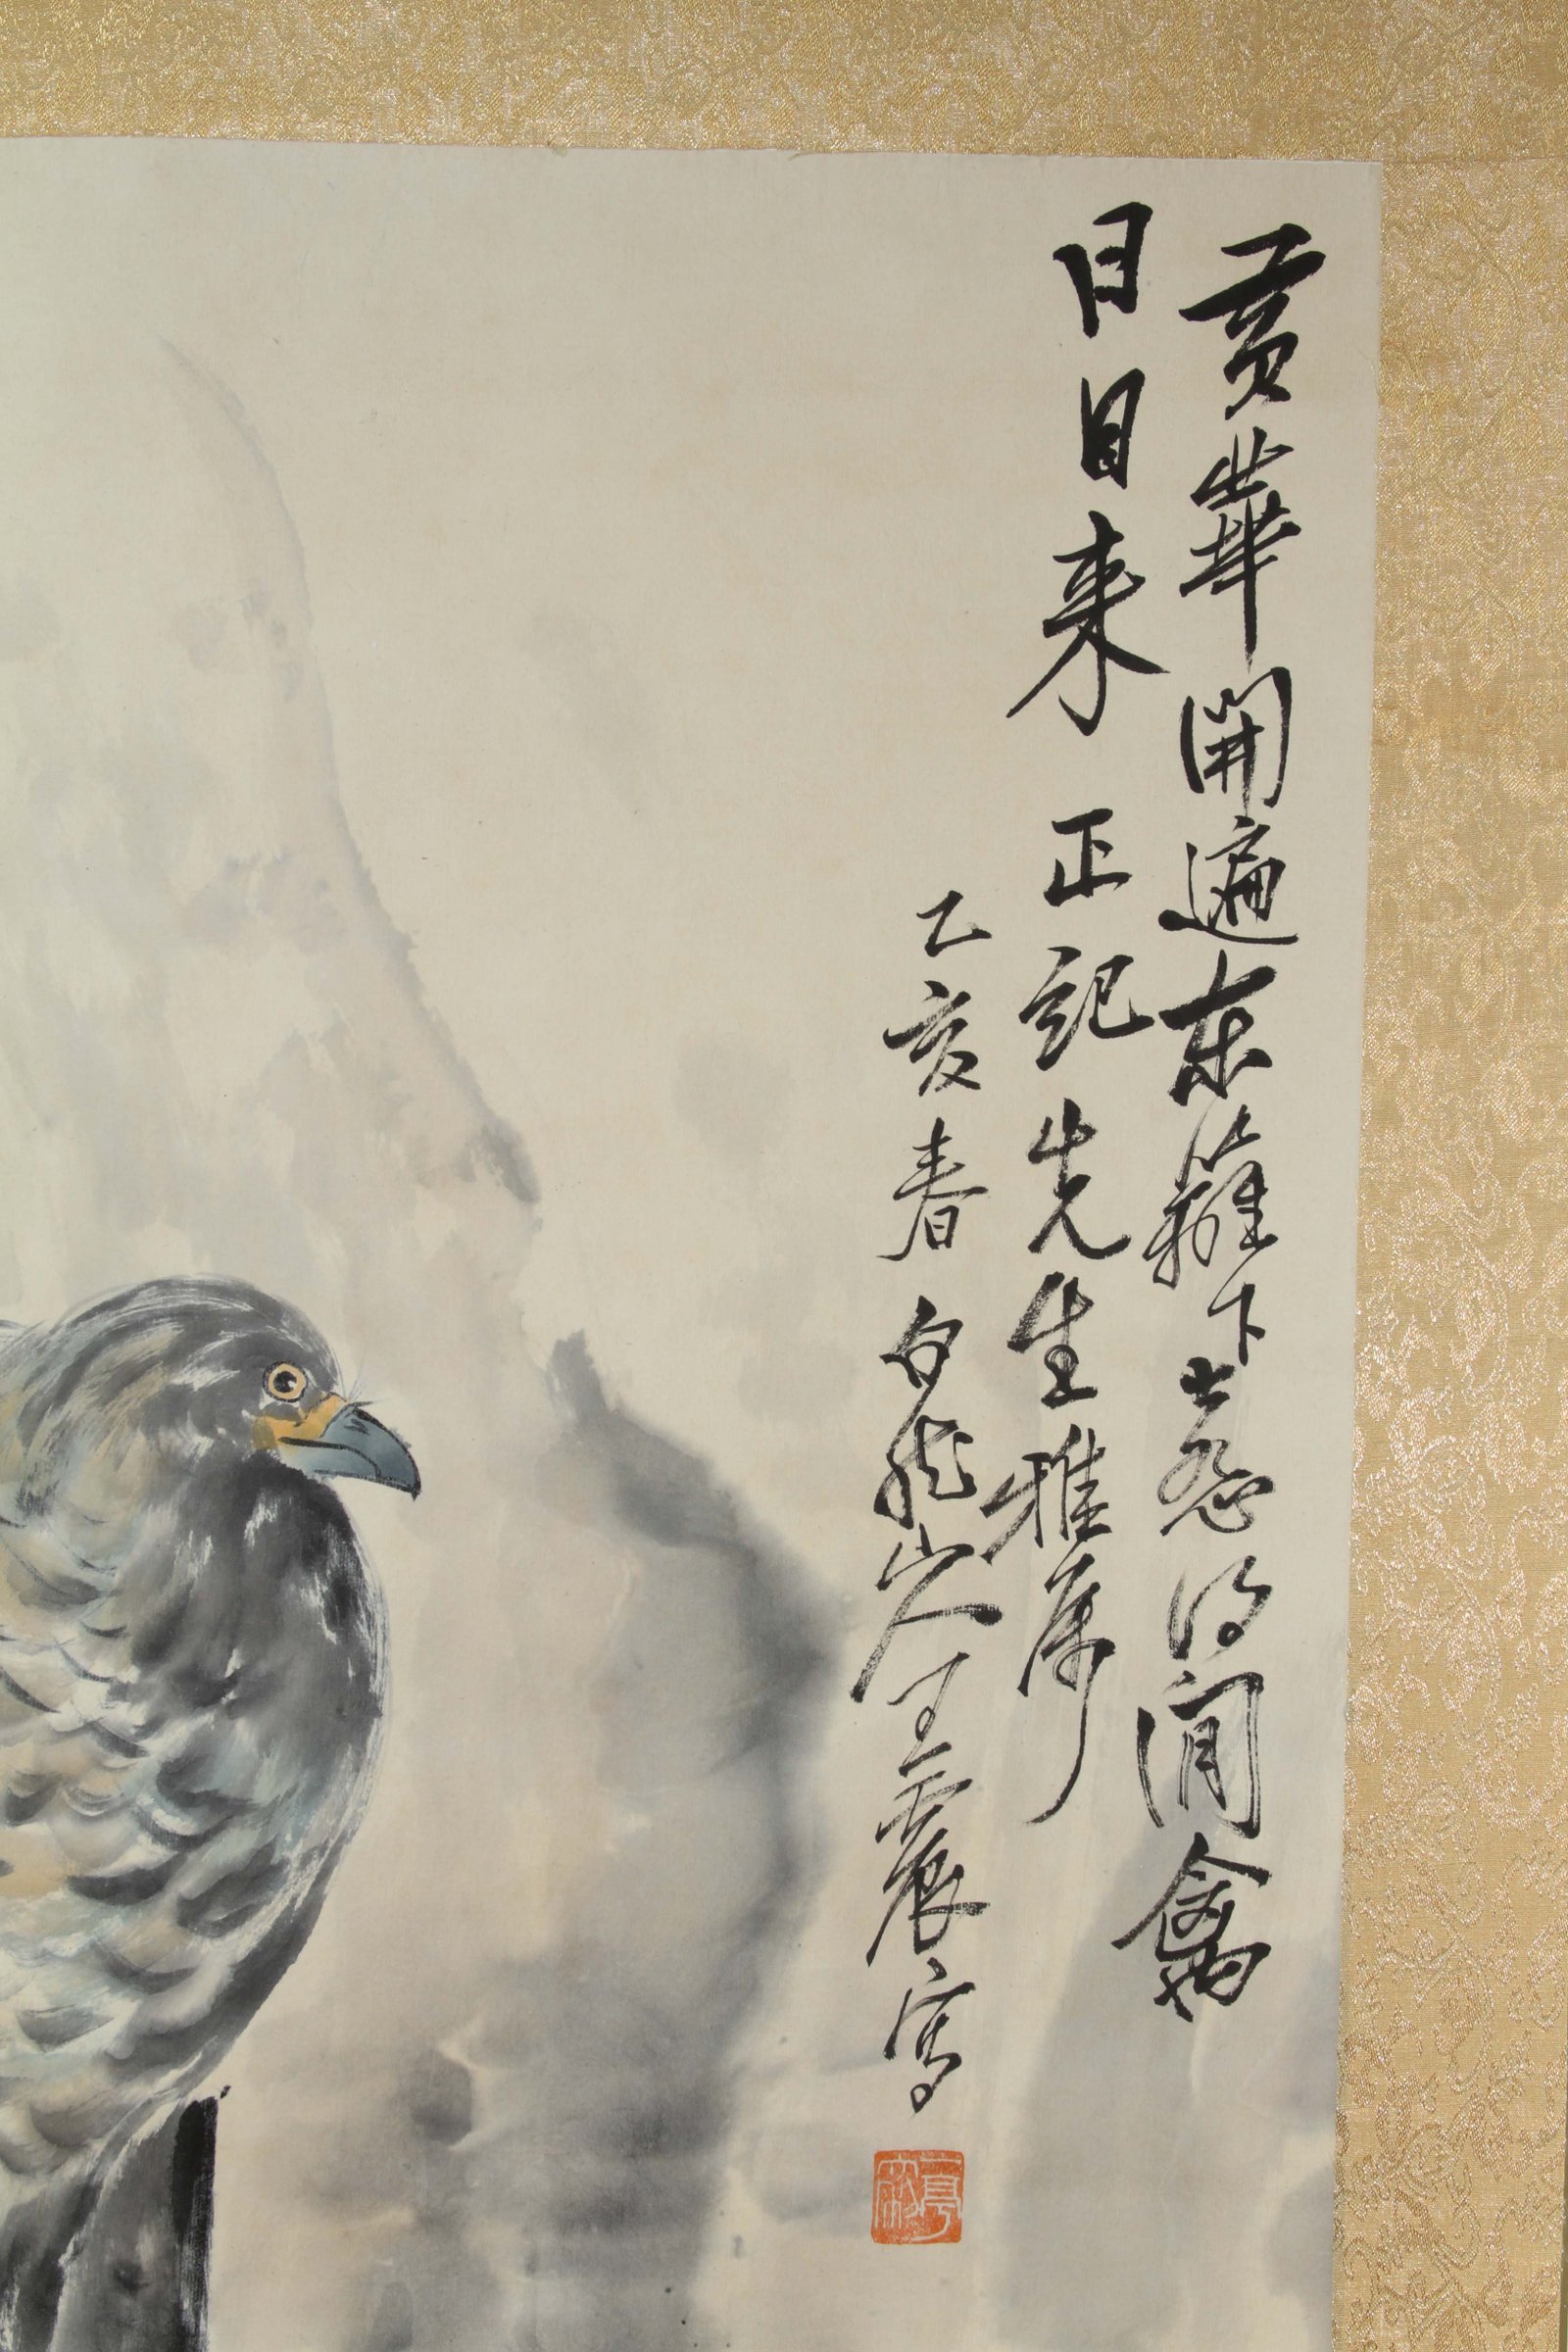 黄華開遍東籬下惹得閒禽
日日来 正記先生雅属
乙亥春 白龍山人王震寫
一亭